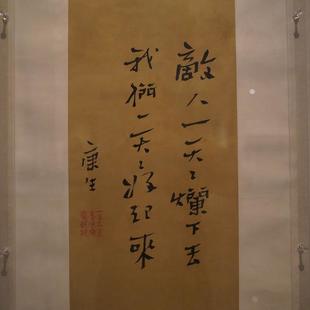 敵人一天天爛下去
我們一天天好起來
康生